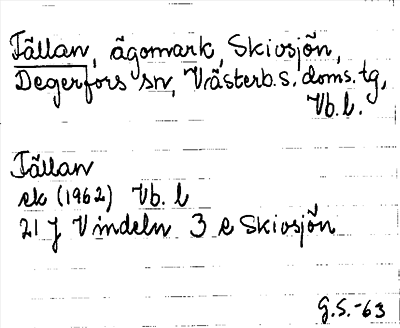 Fällan, ägomark, Skivsjön,
Degerfors sn, Västerb.s. doms.tg,
Vb.l.
Fällan
ek (1962) Vb. l
21 J Vindeln 3 e Skivsjön
G.S.-63